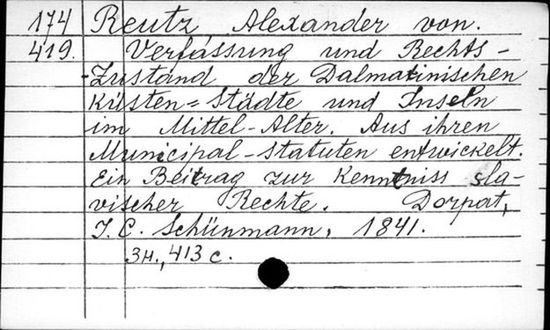 174 Reutz Alexander von.
419. Verfassung und Rechts-
Zustand der Dalmatinischen
Küsten=Städte und Inseln
im Mittel-Alter. Aus ihren
Municipal-Statuten entwickelt.
Ein Beitrag zur Kenntniss sla-
vischer Rechte. Dorpat,
J. C. Schünmann, 1841.
3н., 413 с.